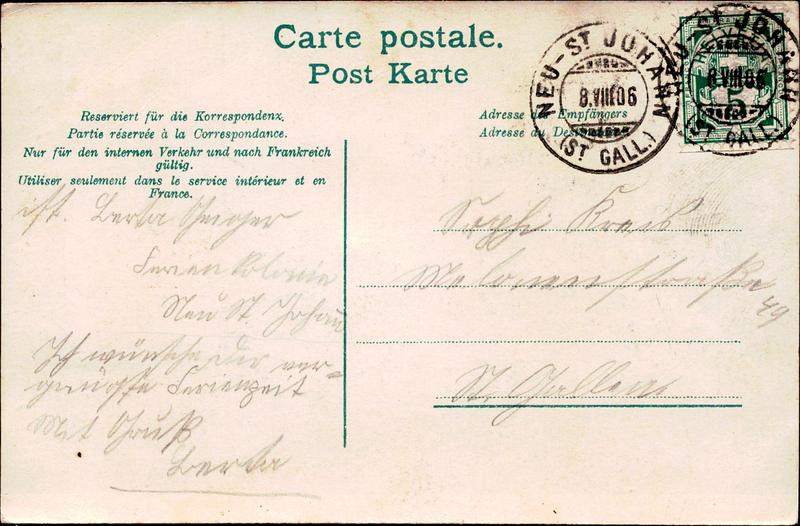 Carte postale.
Post Karte
NEU-ST JOHANN
8.VIII.06
(ST GALL.)
NEU-ST JOHANN
HELVETIA
8.VIII.06
5
(ST GALL.)
Reserviert für die Korrespondenz.
Partie réservée à la Correspondance.
Nur für den internen Verkehr und nach Frankreich
gültig.
Utiliser seulement dans le service intérieur et en
France.
Adresse des Empfängers
Adresse du Des
Berta
Ferienkolonie
Neu St. Johann
Ich wünsche Dir ver=
gnügte Ferienzeit
Mit Gruß
Berta
Sophi Kreis
Melonenstraße
49
St. Gallen